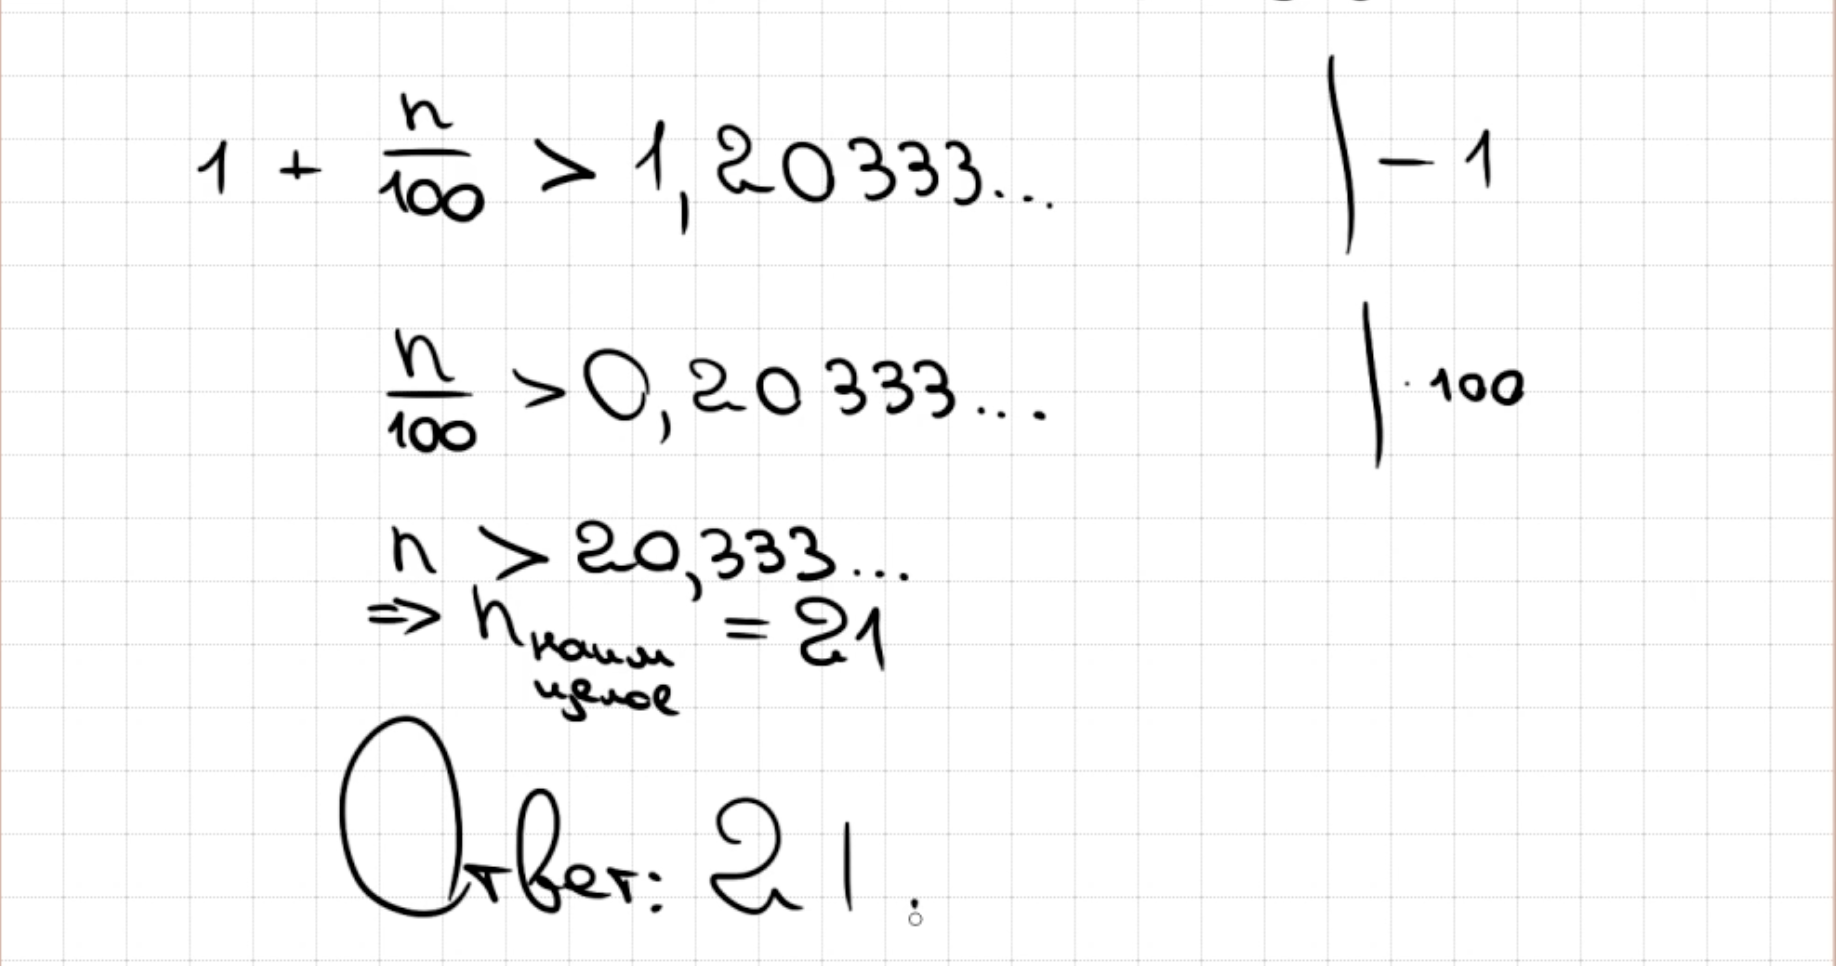 1 + n/100 > 1,20333... | - 1
n/100 > 0,20333... | · 100
n > 20,333...
=> n наим целое = 21
Ответ: 21.